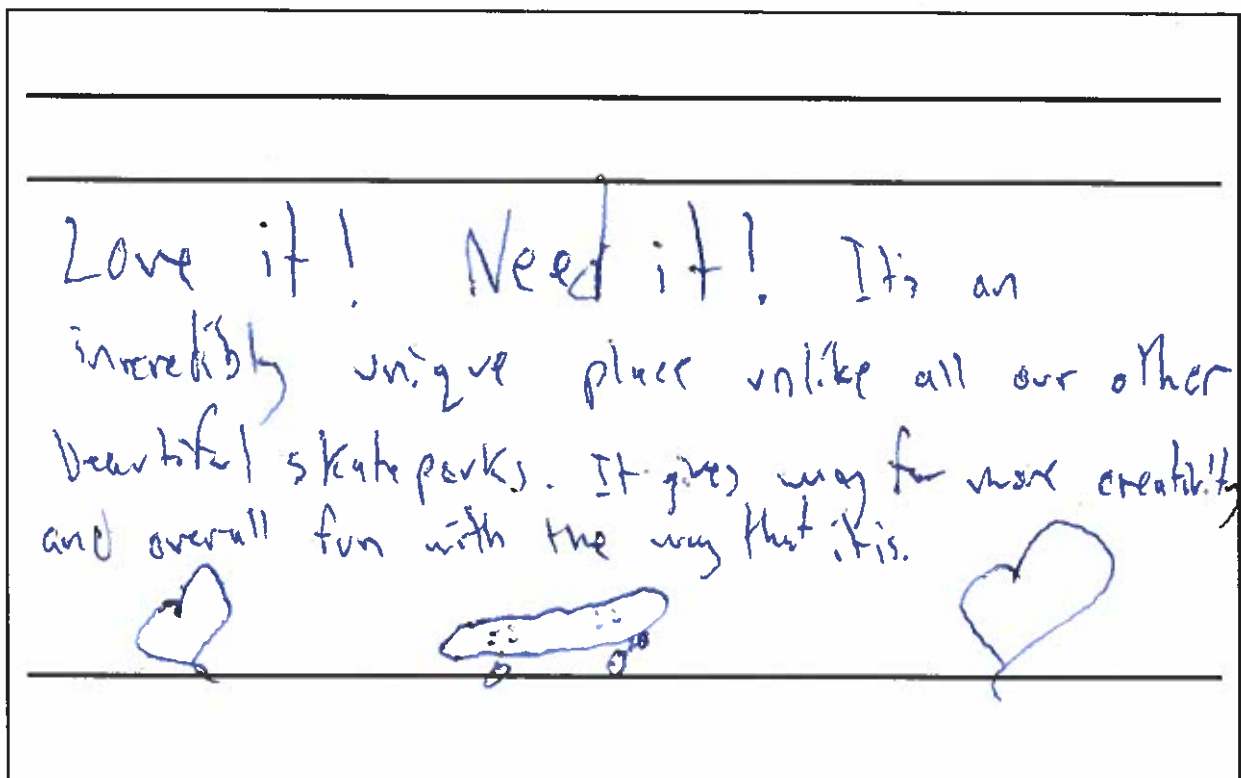 Love it! Need it! It's an
incredibly unique place unlike all our other
beautiful skateparks. It gives way for more creativity
and overall fun with the way that it is.